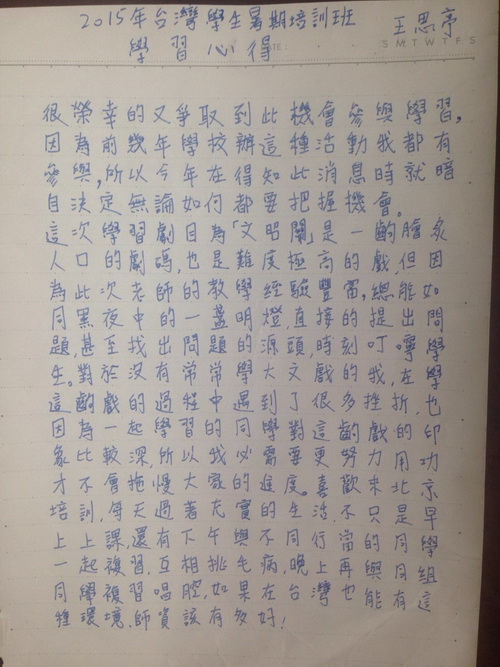 2015年台灣學生暑期培訓班 王思序
學習心得
S M T W T F S
很榮幸的又爭取到此機會參與學習。
因為前幾年學校辦這種活動我都有
參與,所以今年在得知此消息時就暗
自決定無論如何都要把握機會。
這次學習劇目為「文昭關」是一齣膾炙
人口的劇碼,也是難度極高的戲,但因
為此次老師的教學經驗豐富。總能如
同黑夜中的一盞明燈,直接的提出問
題,甚至找出問題的源頭,時刻叮嚀學
生。對於沒有常常學大文戲的我,在學
這齣戲的過程中遇到了很多挫折,也
因為一起學習的同學對這齣戲的印
象比較深,所以我必需要更努力用功
才不會拖慢大家的進度。喜歡來北京
培訓,每天過著充實的生活,不只是早
上上課,還有下午與不同行當的同學
一起複習,互相挑毛病,晚上再與同組
同學複習唱腔,如果在台灣也能有這
種環境.師資該有多好!